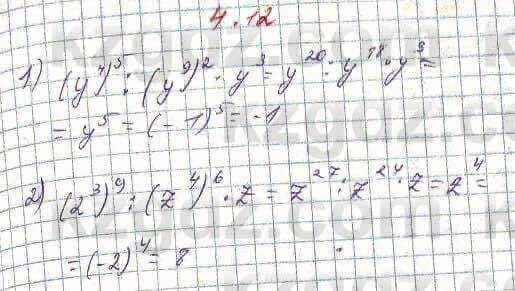 4.12
1) (y⁴)⁵ : (y⁹)² · y³ = y²⁰ : y¹⁸ · y³ =
= y⁵ = (-1)⁵ = -1
2) (z³)⁹ : (z⁴)⁶ · z = z²⁷ : z²⁴ · z = z⁴ =
= (-2)⁴ = 8